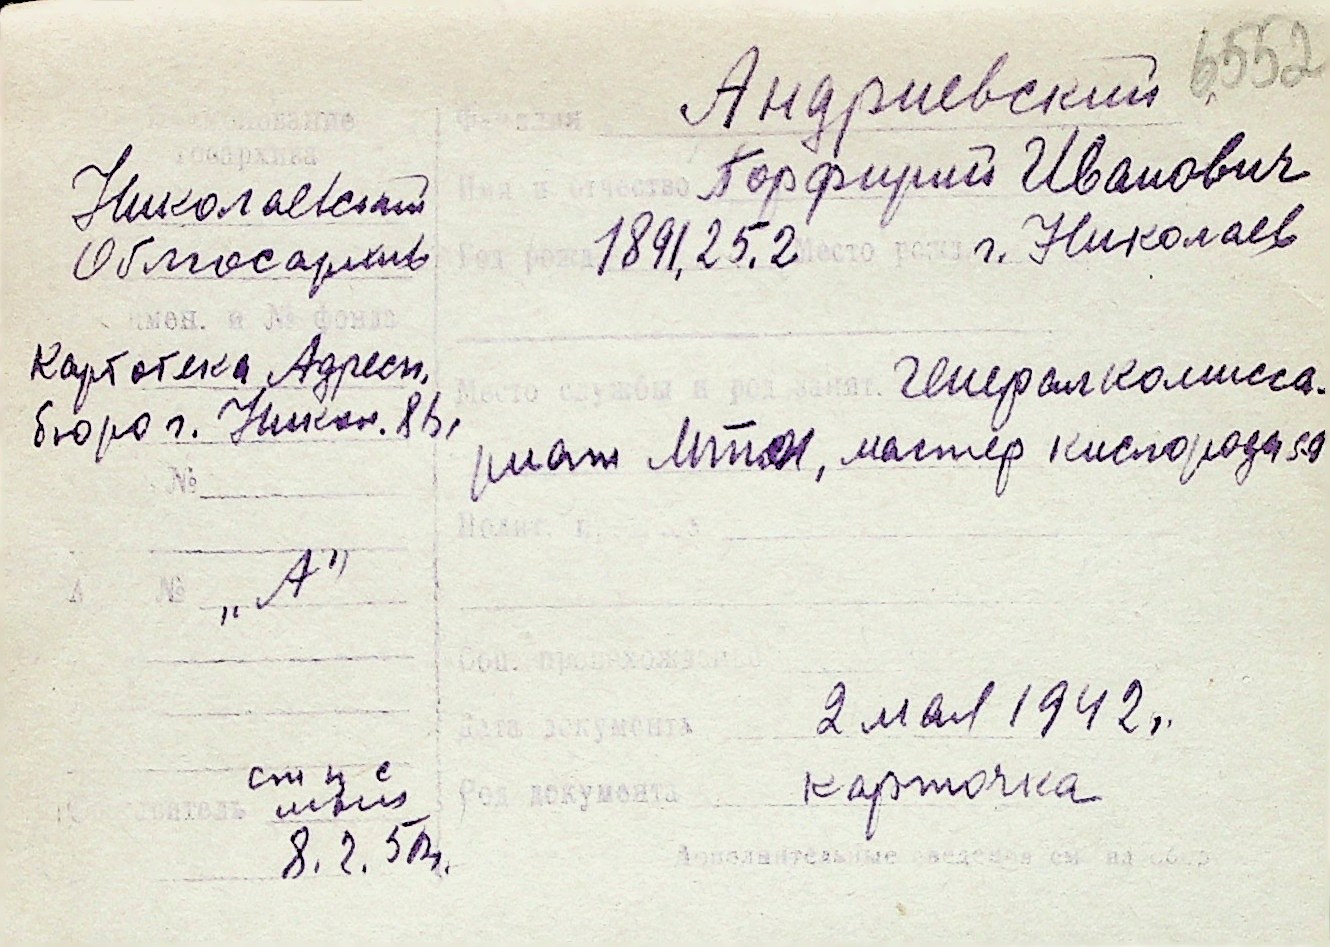 6552
Наименование
госархива
Николаевский
Облгосархив
наимен. и № фонда
Картотека Адресн.
бюро г. Никол.
№
№ „А"
8.2.5
Фамилия Андриевский
Имя и отчество Порфирий Иванович
Год рожд. 1891, 25.2 Место рожд. г. Николаев
Место службы и род занят. Генералкомисса-
риат мастер кислорода
Полит.
Соц. происхождение
Дата документа 2 мая 1942 г.
Род документа карточка
Дополнительные сведения см. на обор